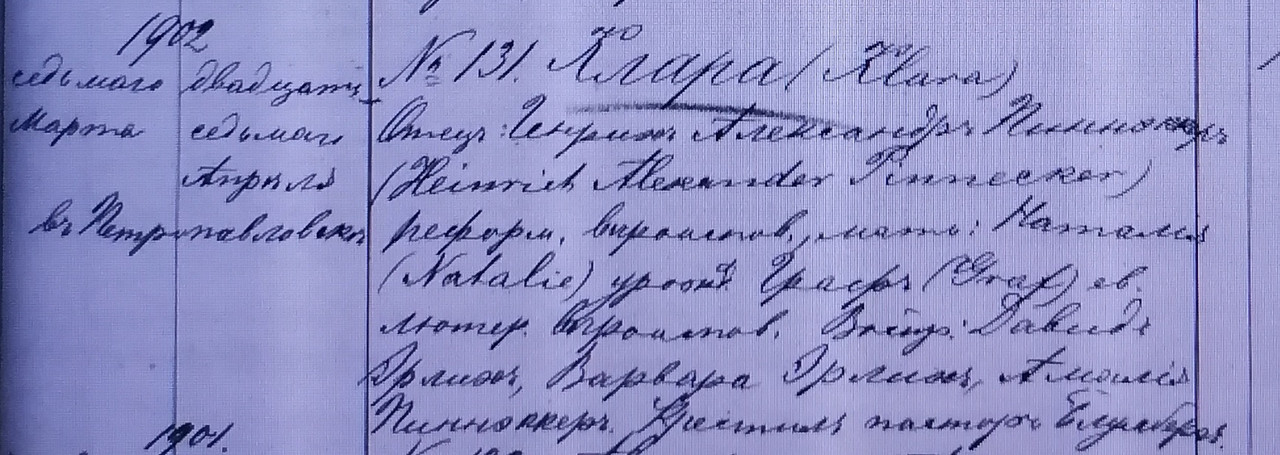 1902
седьмаго двадцать № 131. Клара (Klara)
Марта седьмаго Отецъ: Генрихъ Александръ Пиннеккеръ
Апрѣля (Heinrich Alexander Pinnecker)
въ Петропавловскѣ реформ. вѣроиспов., мать: Наталія
(Natalie) урожд. Графъ (Graf) ев.
лютер. вѣроиспов. Воспр: Давидъ
Эрлихъ, Варвара Эрлихъ, Амалія
Пиннеккеръ. Крестилъ пасторъ
1901.